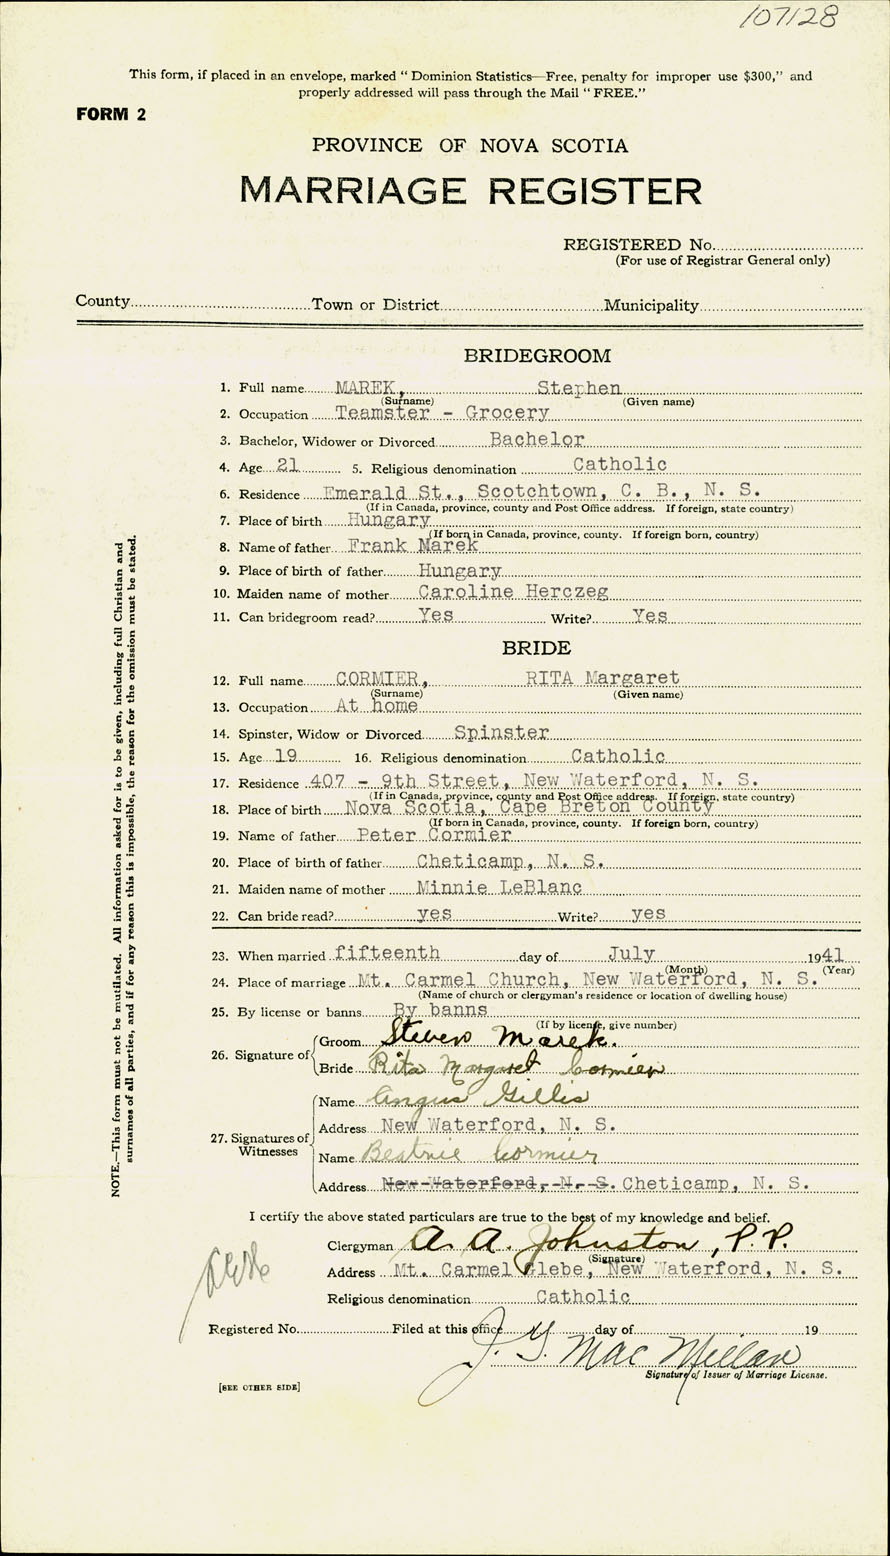 107128
This form, if placed in an envelope, marked “ Dominion Statistics—Free, penalty for improper use $300,” and
properly addressed will pass through the Mail “ FREE.”
FORM 2
PROVINCE OF NOVA SCOTIA
MARRIAGE REGISTER
REGISTERED No.
(For use of Registrar General only)
County Town or District Municipality
BRIDEGROOM
1. Full name MAREK, Stephen
(Surname) (Given name)
2. Occupation Teamster - Grocery
3. Bachelor, Widower or Divorced Bachelor
4. Age 21 5. Religious denomination Catholic
6. Residence Emerald St., Scotchtown, C. B., N. S.
(If in Canada, province, county and Post Office address. If foreign, state country)
7. Place of birth Hungary
(If born in Canada, province, county. If foreign born, country)
8. Name of father Frank Marek
9. Place of birth of father Hungary
10. Maiden name of mother Caroline Herczeg
11. Can bridegroom read? Yes Write? Yes
BRIDE
12. Full name CORMIER, RITA Margaret
(Surname) (Given name)
13. Occupation At home
14. Spinster, Widow or Divorced Spinster
15. Age 19 16. Religious denomination Catholic
17. Residence 407 - 9th Street, New Waterford, N. S.
(If in Canada, province, county and Post Office address. If foreign, state country)
18. Place of birth Nova Scotia, Cape Breton County
(If born in Canada, province, county. If foreign born, country)
19. Name of father Peter Cormier
20. Place of birth of father Cheticamp, N. S.
21. Maiden name of mother Minnie LeBlanc
22. Can bride read? yes Write? yes
23. When married fifteenth day of July 1941
(Month) (Year)
24. Place of marriage Mt. Carmel Church, New Waterford, N. S.
(Name of church or clergyman's residence or location of dwelling house)
25. By license or banns By banns
(If by license, give number)
26. Signature of
Groom Steven Marek.
Bride Rita Margaret Cormier
27. Signatures of Witnesses
Name Angus Gillis
Address New Waterford, N. S.
Name Beatrie Cormier
Address New Waterford, N. S. Cheticamp, N. S.
I certify the above stated particulars are true to the best of my knowledge and belief.
Clergyman A. A. Johnston, P.P.
(Signature)
Address Mt. Carmel Glebe, New Waterford, N. S.
Religious denomination Catholic
Registered No. Filed at this office day of 19
J. G. Mac Millan
Signature of Issuer of Marriage License.
[SEE OTHER SIDE]
NOTE.—This form must not be mutilated. All information asked for is to be given, including full Christian and
surnames of all parties, and if for any reason this is impossible, the reason for the omission must be stated.